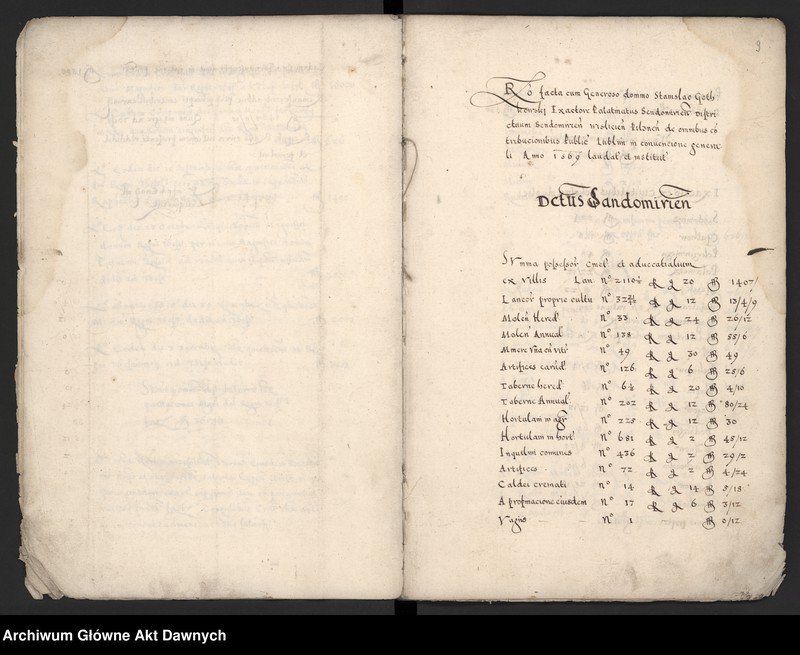 9
Ro facta cum Generoso domino Stanislao Goth
kowskj Exactore Palatinatus Sendomirien Distri
ctuum Sendomirien Wislicien Pilznen de omnibus co
tribucionibus Public Lublini in conuencione genera
li Anno 1569 laudat et institut
Dctus Sandomirien
Summa possessor cmet et aduocatialium
ex villis Lan No 2110½ 20 1407/
Laneor proprie cultu No 32 12 13/4/9
Molen Hered No 33 24 26/12
Molen Annual No 138 12 55/6
No 49 30 49
Artifices No 126 6 25/6
Taberne hered No 6½ 20 4/10
Taberne Annual No 202 12 80/24
Hortulani in agr No 225 12 30
Hortulani in hort No 681 2 45/12
Inquilini comunes No 436 2 29/2
Artifices No 72 2 4/24
Caldei cremati No 14 14 5/18
A propinacione eiusdem No 17 6 3/12
Vagus No 1 0/12
Archiwum Główne Akt Dawnych